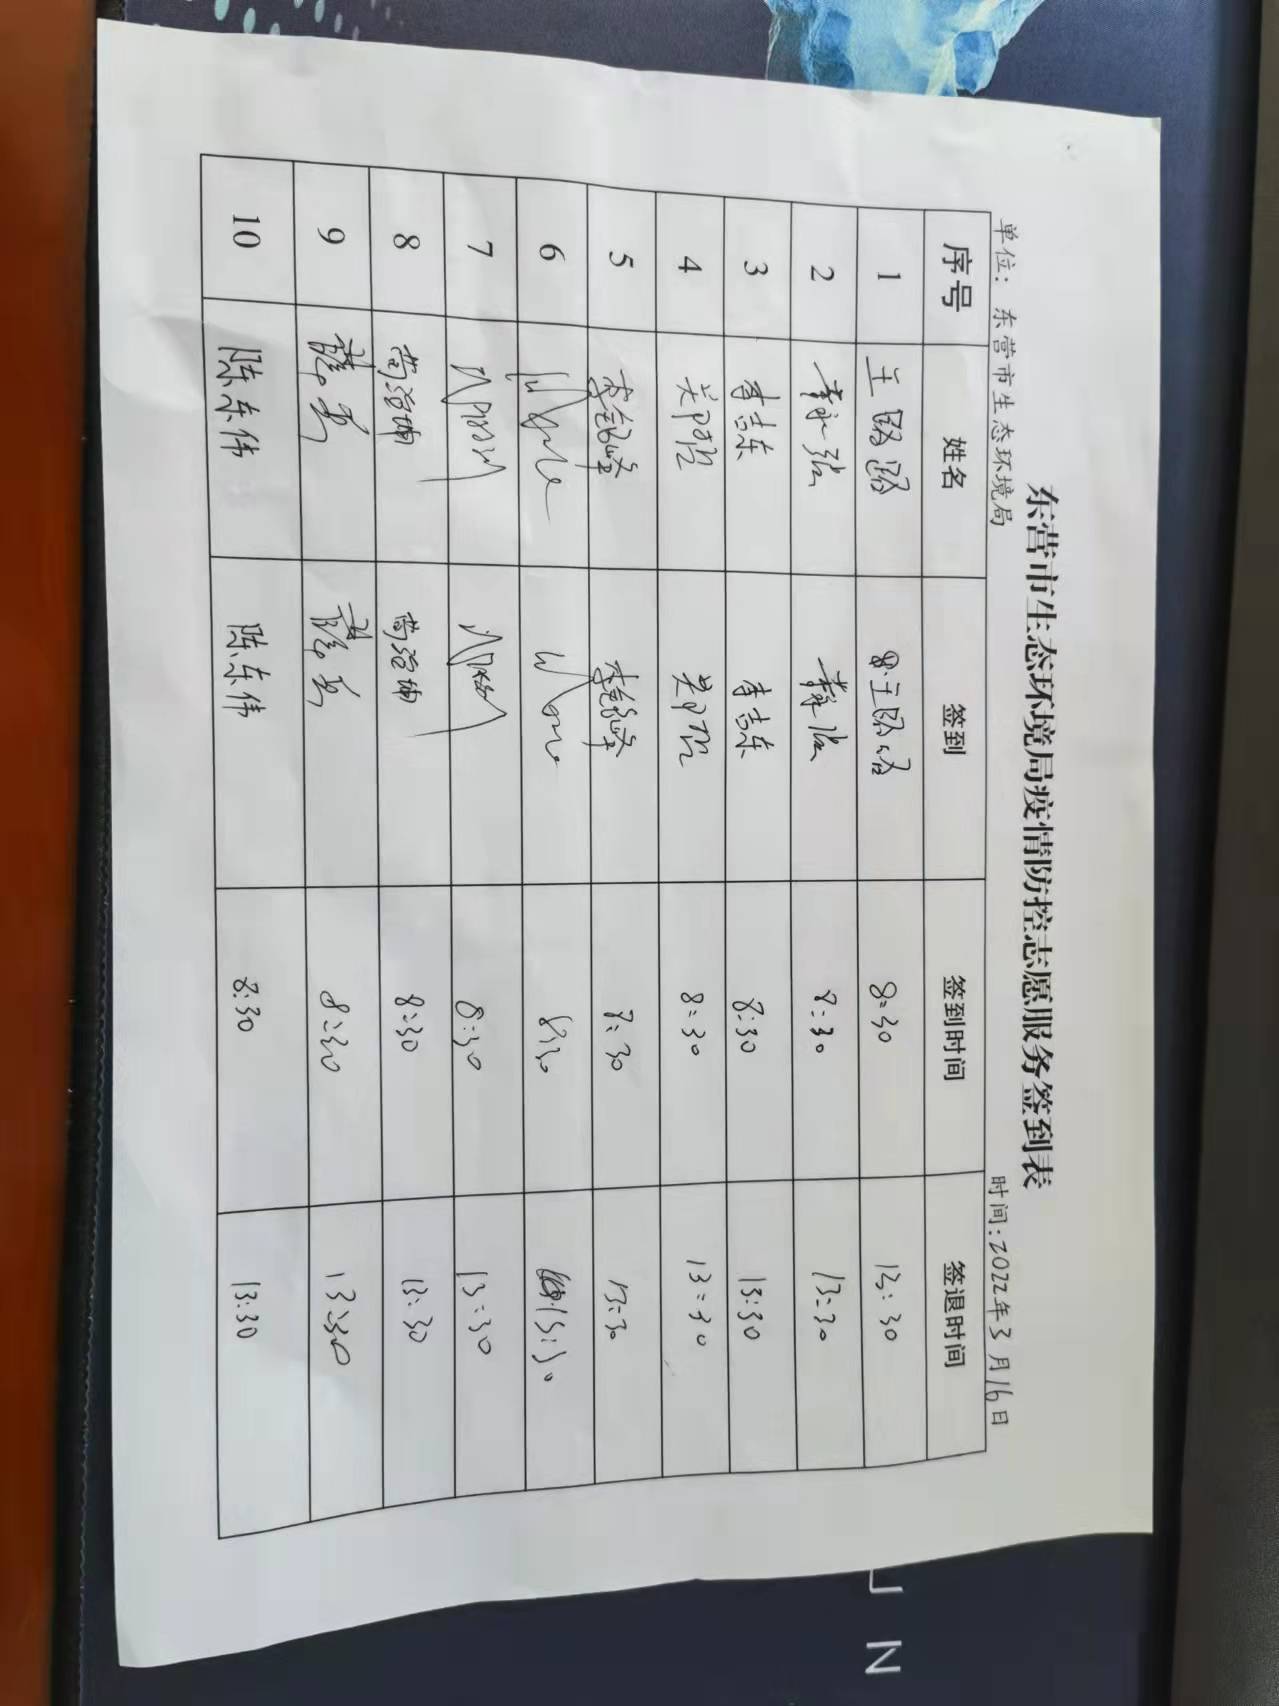 东营市生态环境局疫情防控志愿服务签到表
单位：东营市生态环境局 时间：2022年3月16日
序号 姓名 签到 签到时间 签退时间
1 王璐璐 王璐璐 8:30 13:30
2 8:30 13:30
3 李吉东 李吉东 8:30 13:30
4 8:30 13:30
5 8:30 13:30
6 8:30 13:30
7 8:30 13:30
8 8:30 13:30
9 8:30 13:30
10 陈东伟 陈东伟 8:30 13:30
J N